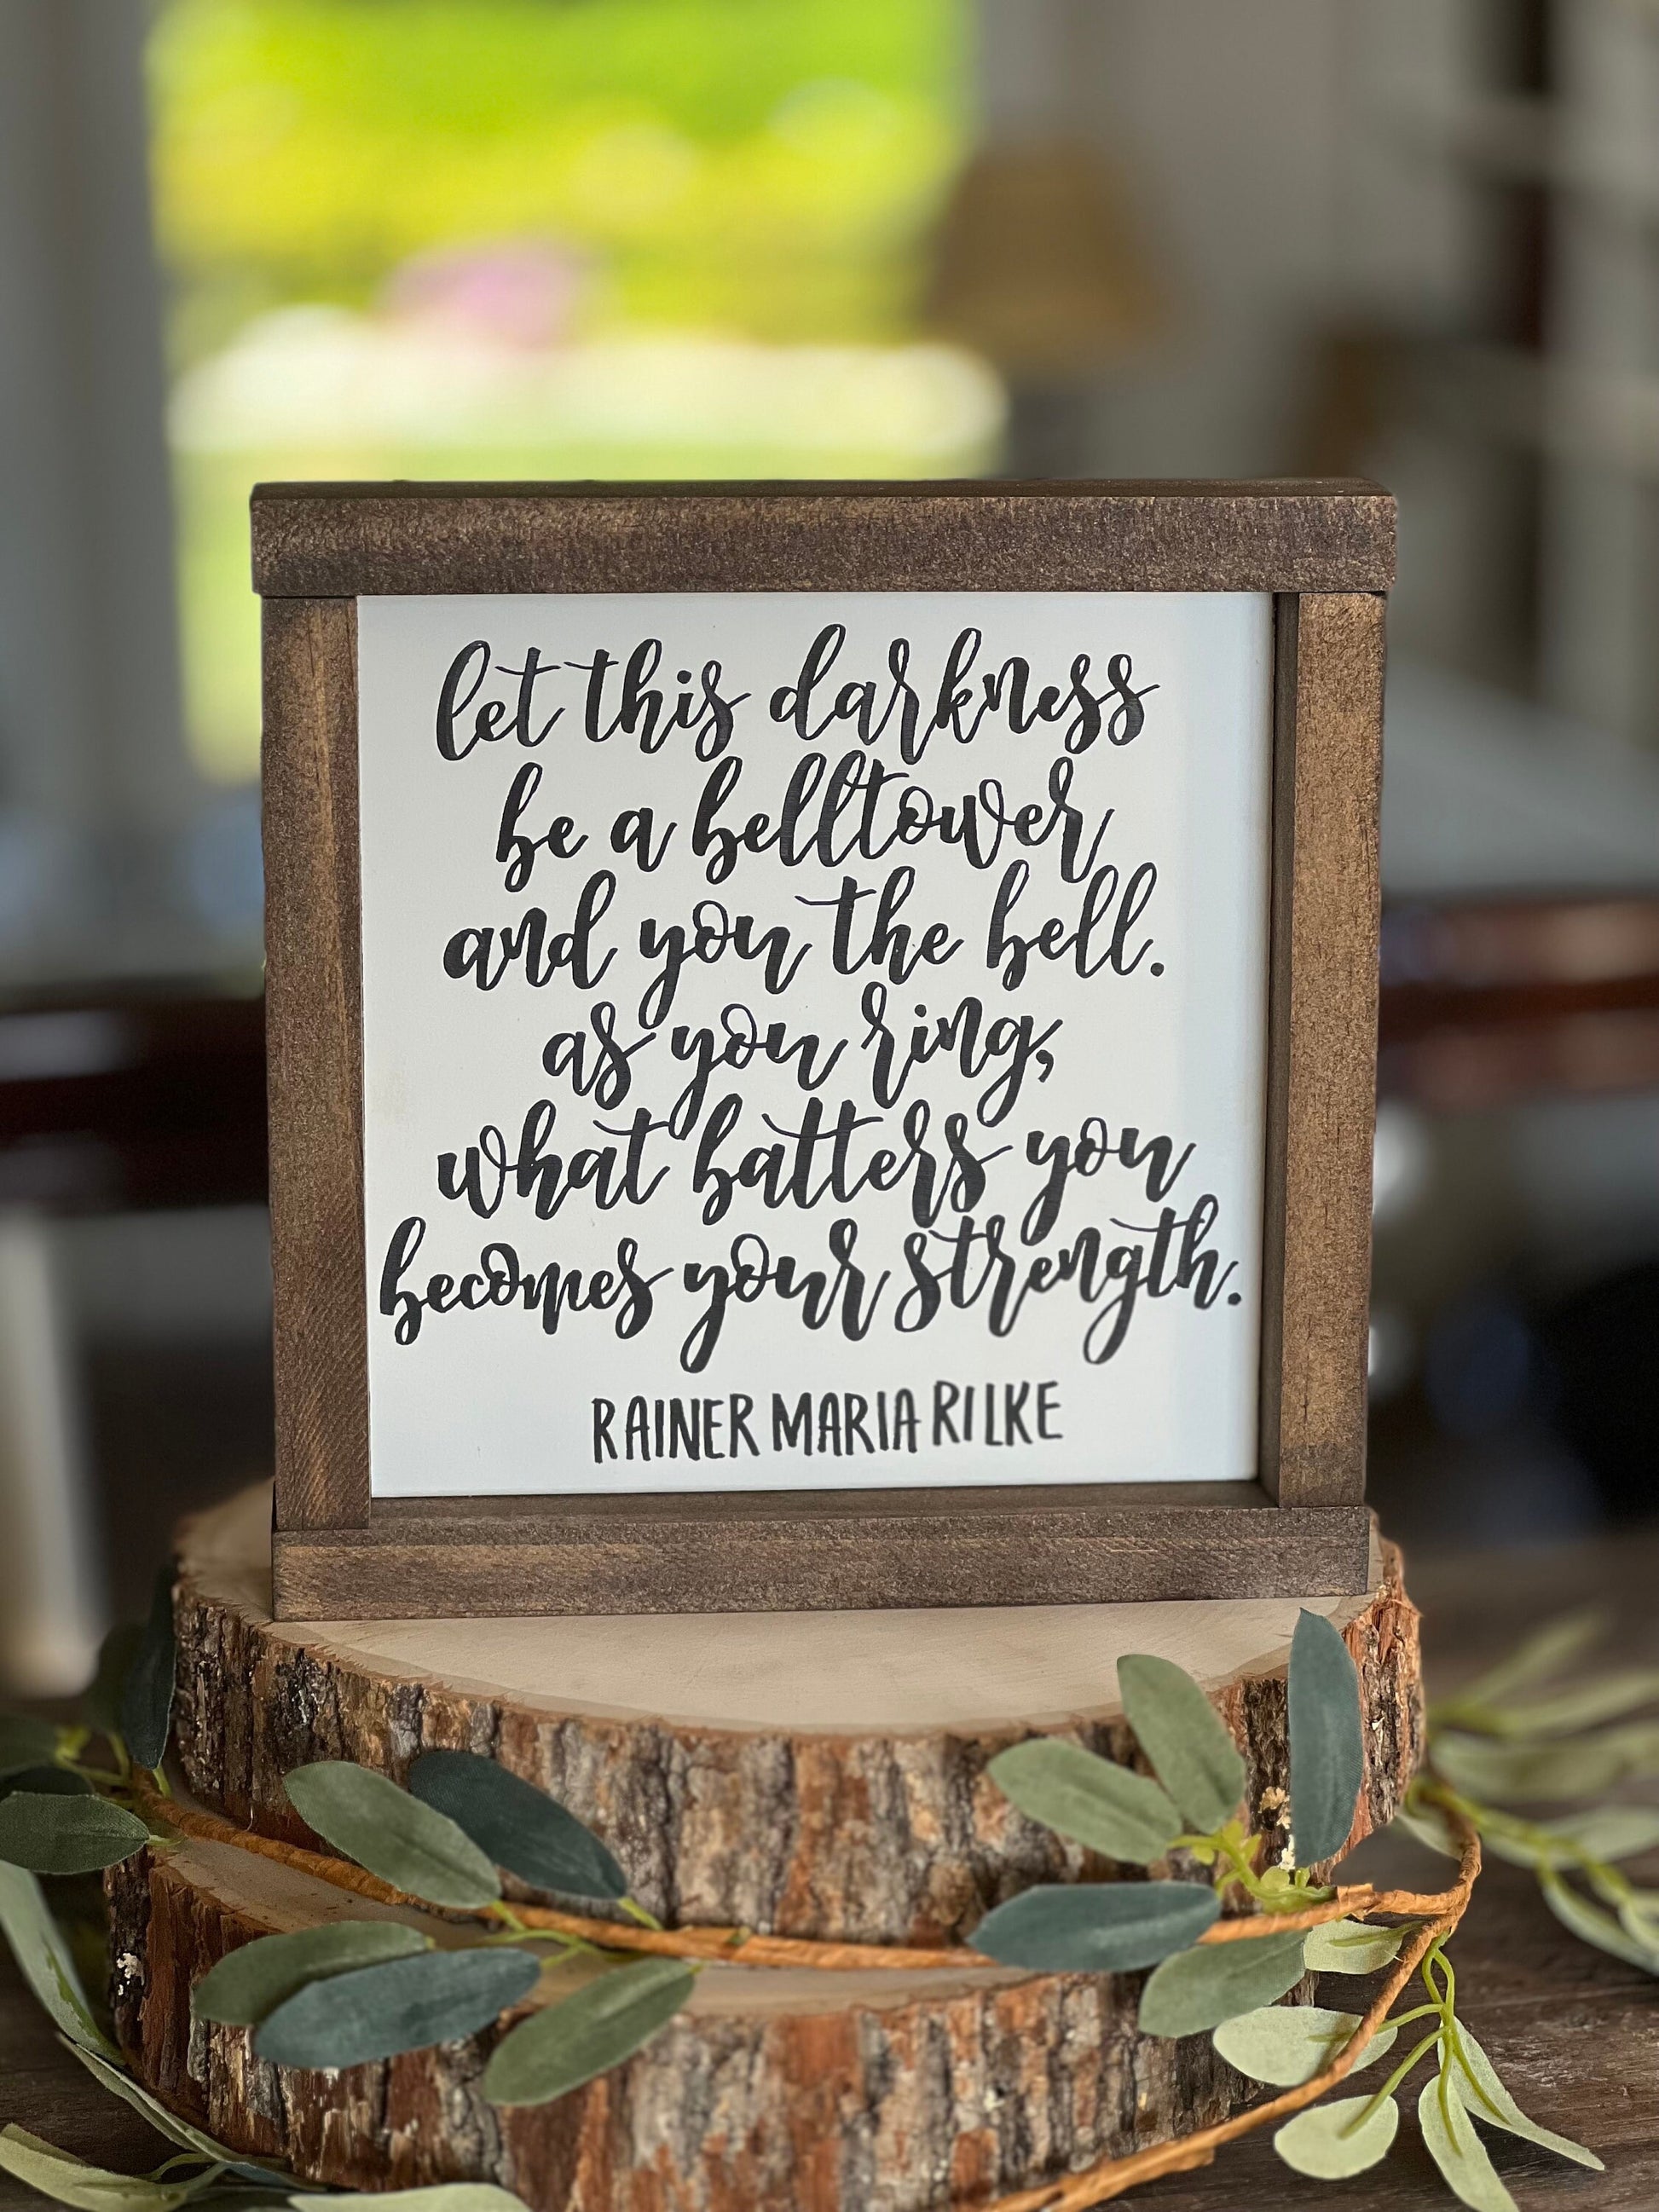 let this darkness
be a belltower
and you the bell.
as you ring,
what batters you
becomes your strength.
RAINER MARIA RILKE